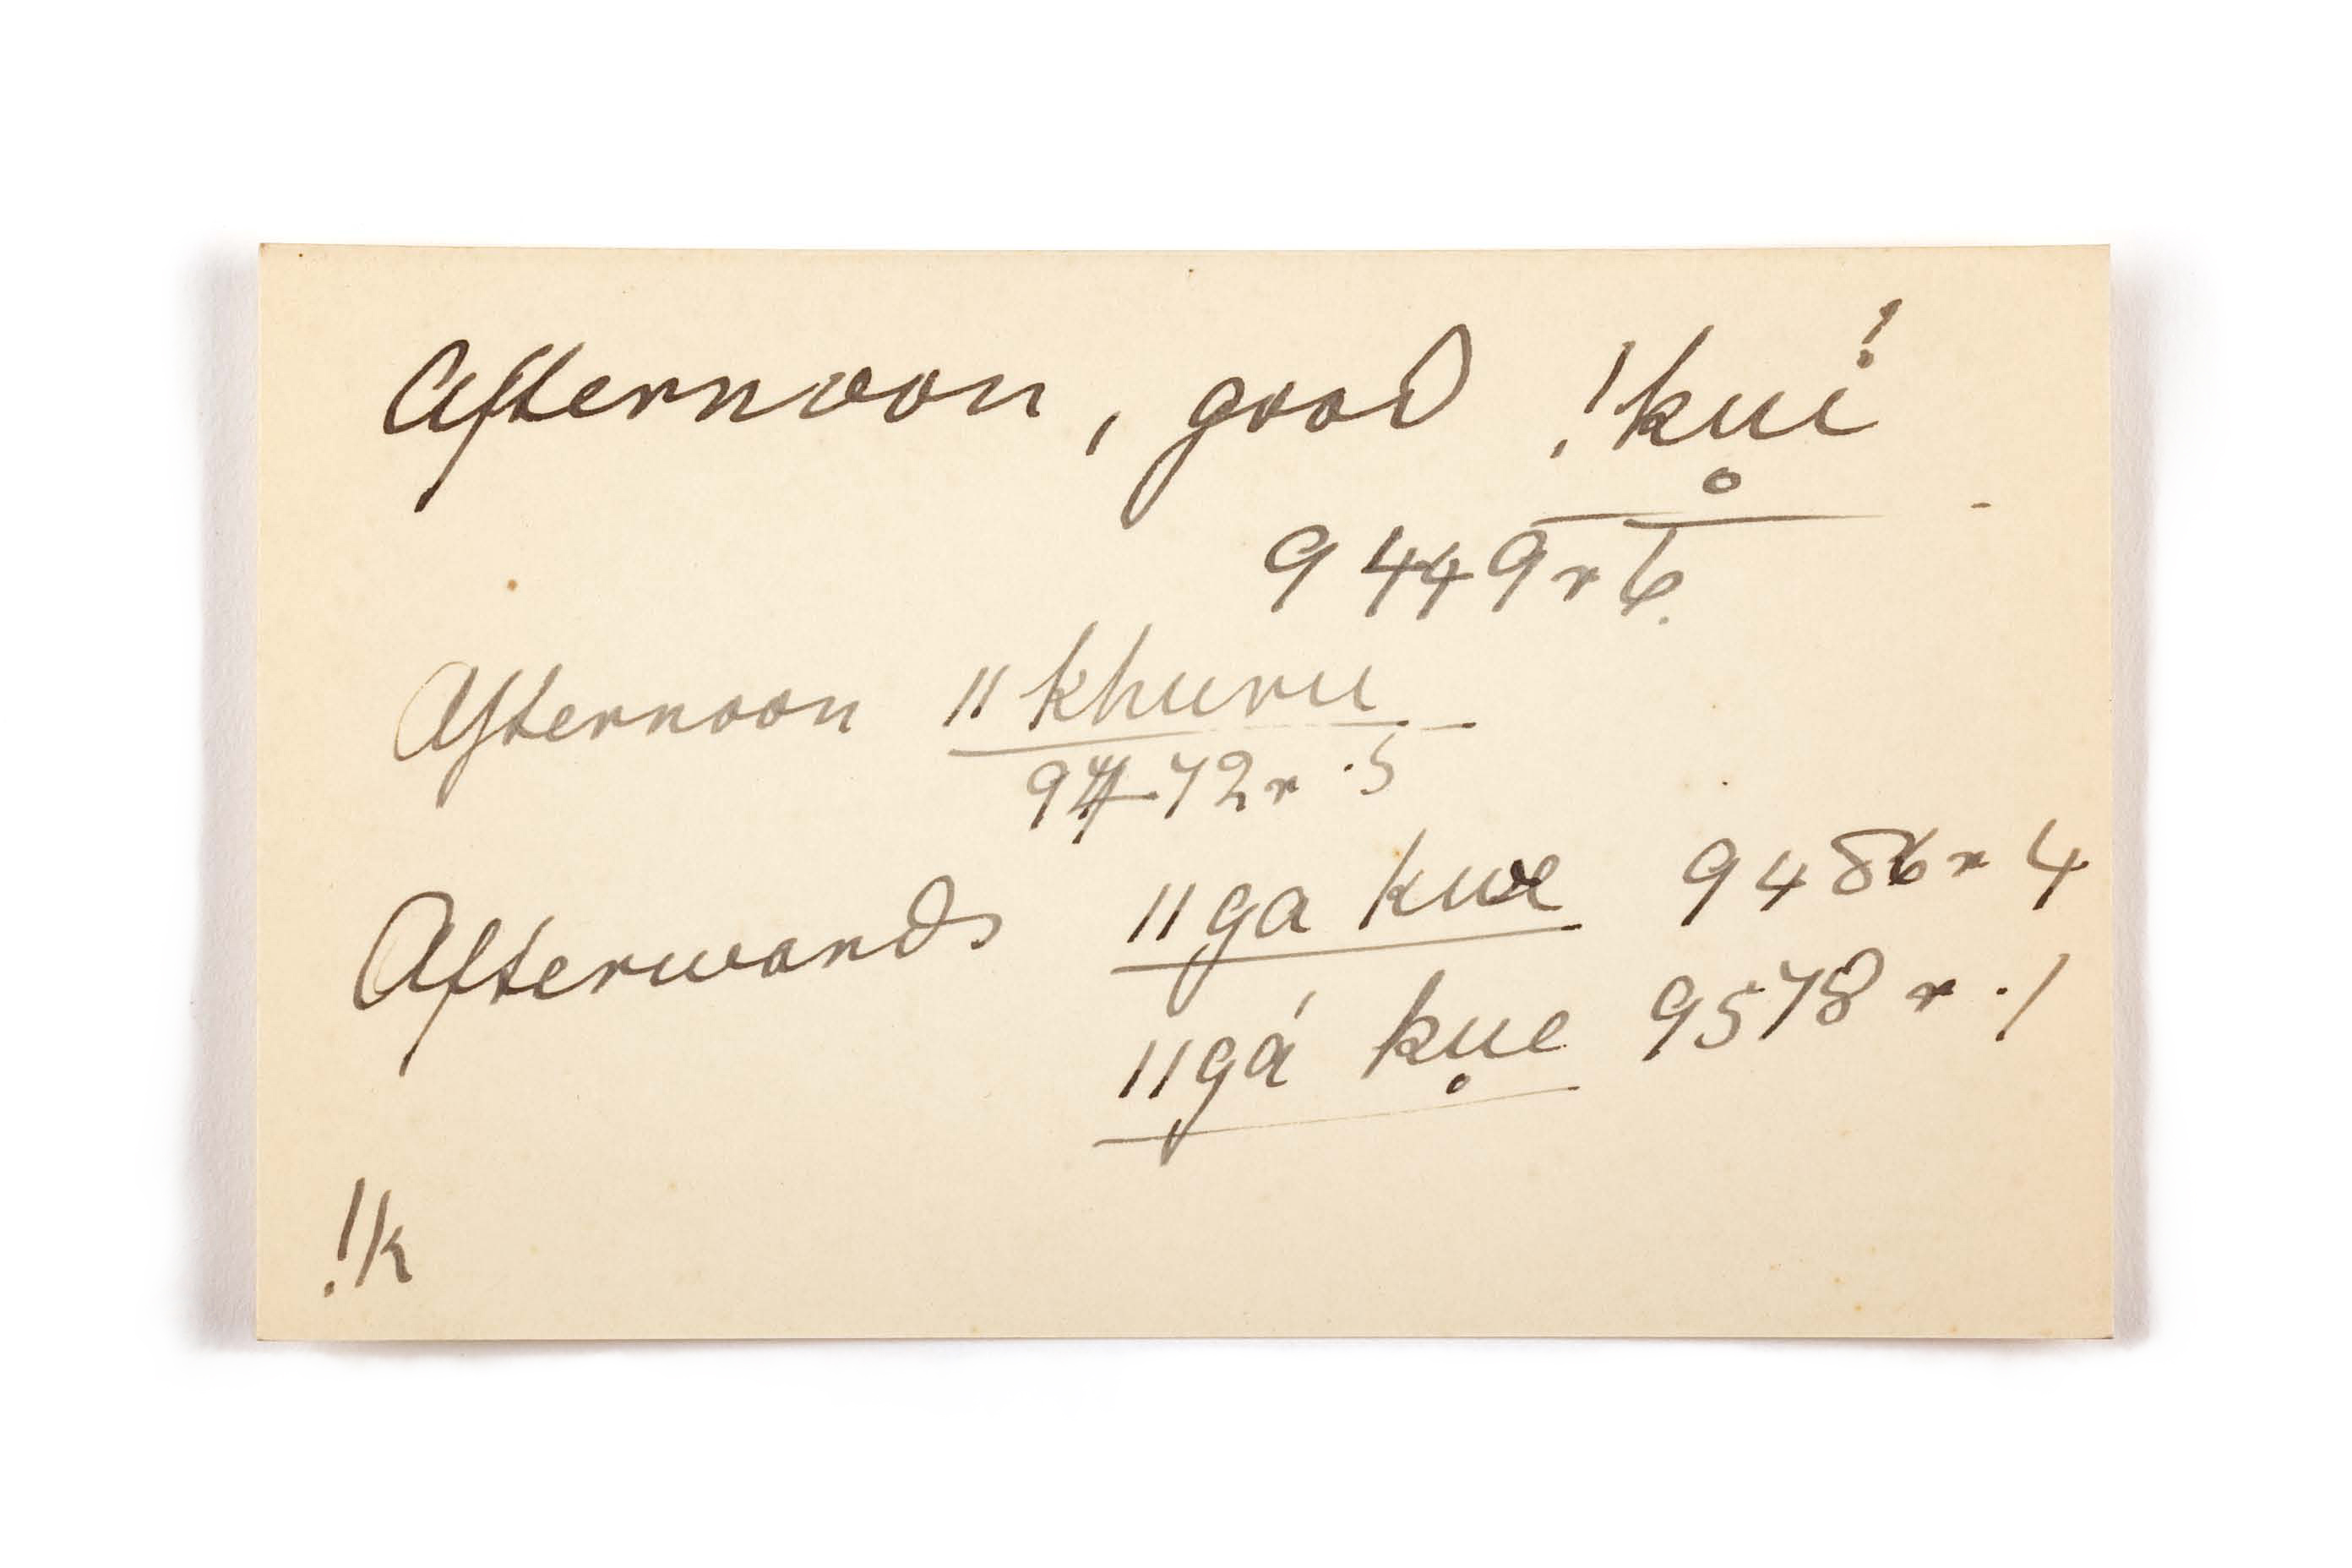 Afternoon, good !ku̥í
9449 r 6.
Afternoon ǁkhuru
9472 r .5
Afterwards ǁga kwe 9486 r 4
ǁgá ku̥e 9578 r .1
!k